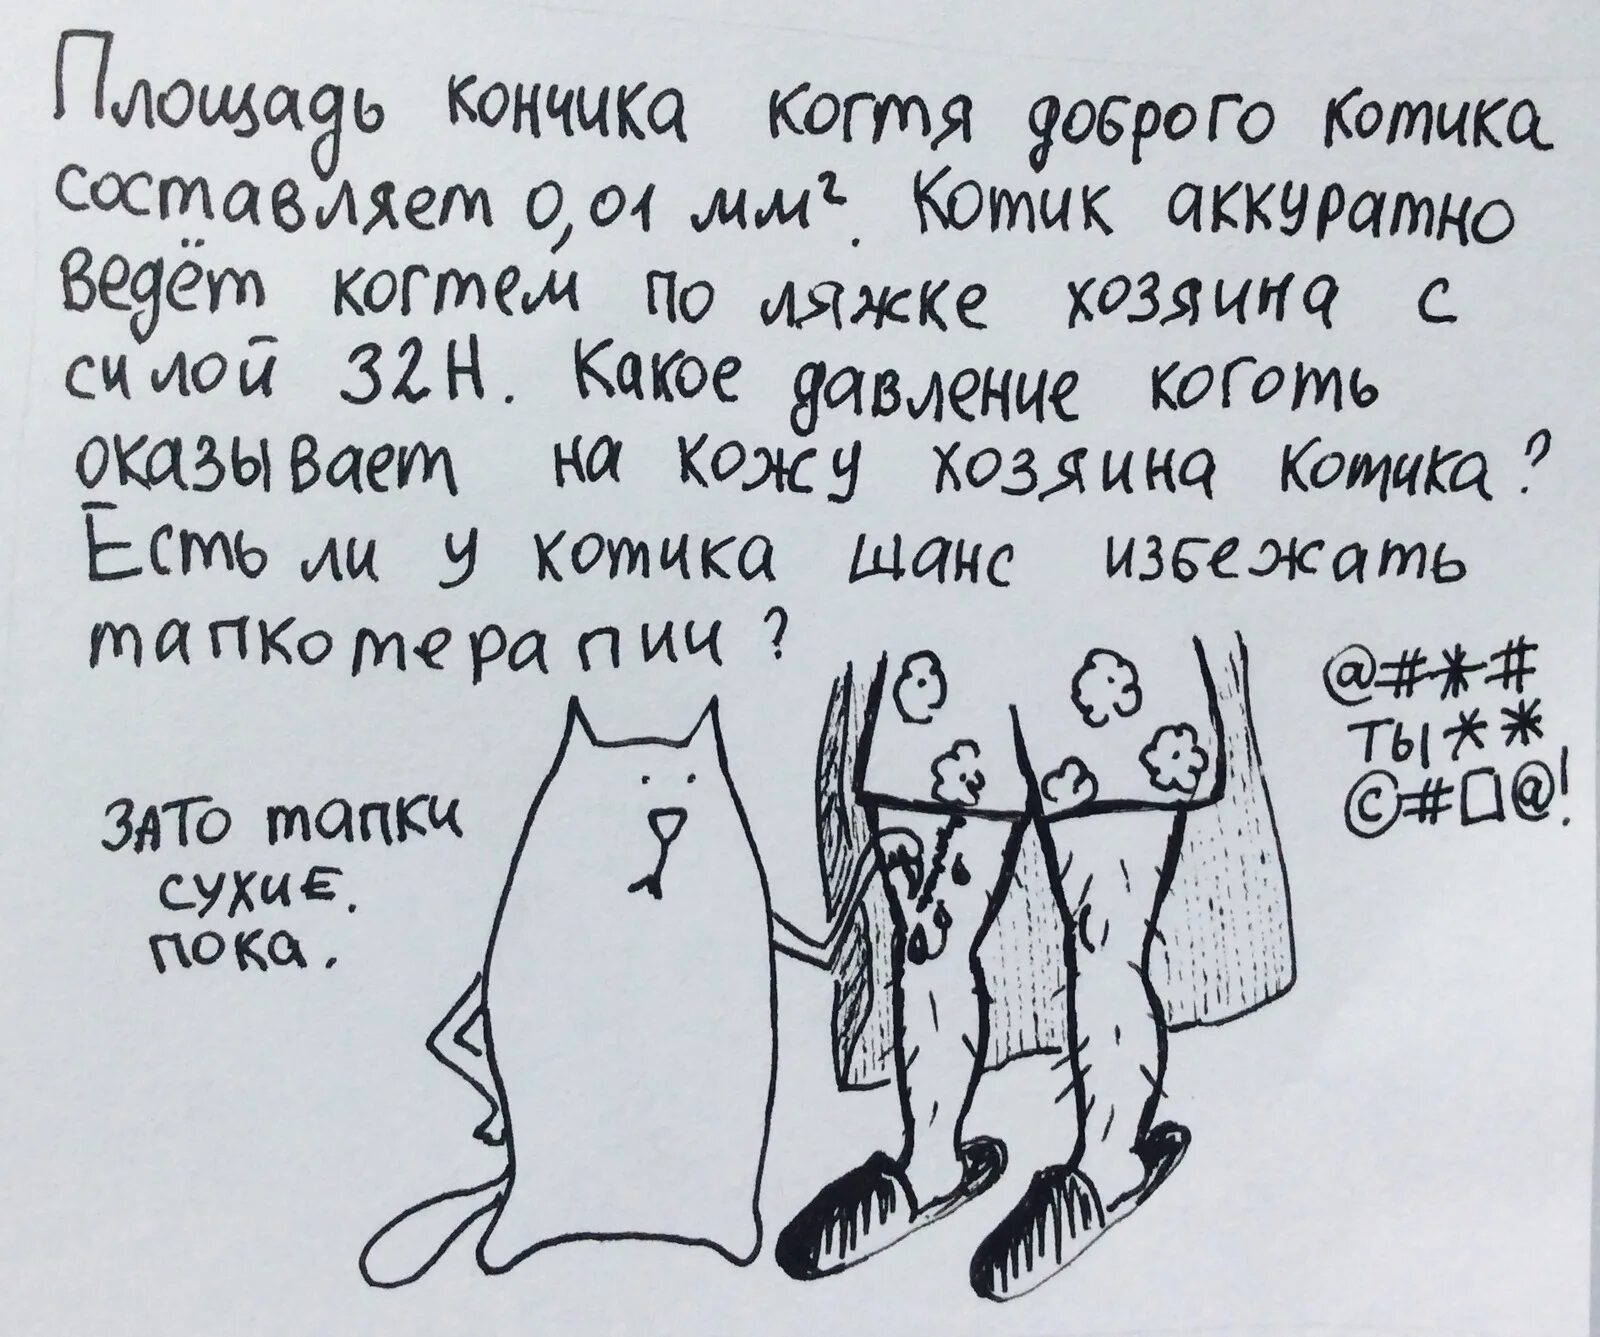 Площадь кончика когтя доброго котика
составляет 0,01 мм². Котик аккуратно
ведёт когтем по ляжке хозяина с
силой 32Н. Какое давление коготь
оказывает на кожу хозяина котика?
Есть ли у котика шанс избежать
тапкотерапии?
@#*#
ты**
©#□@!
ЗАТО тапки
сухие.
пока.